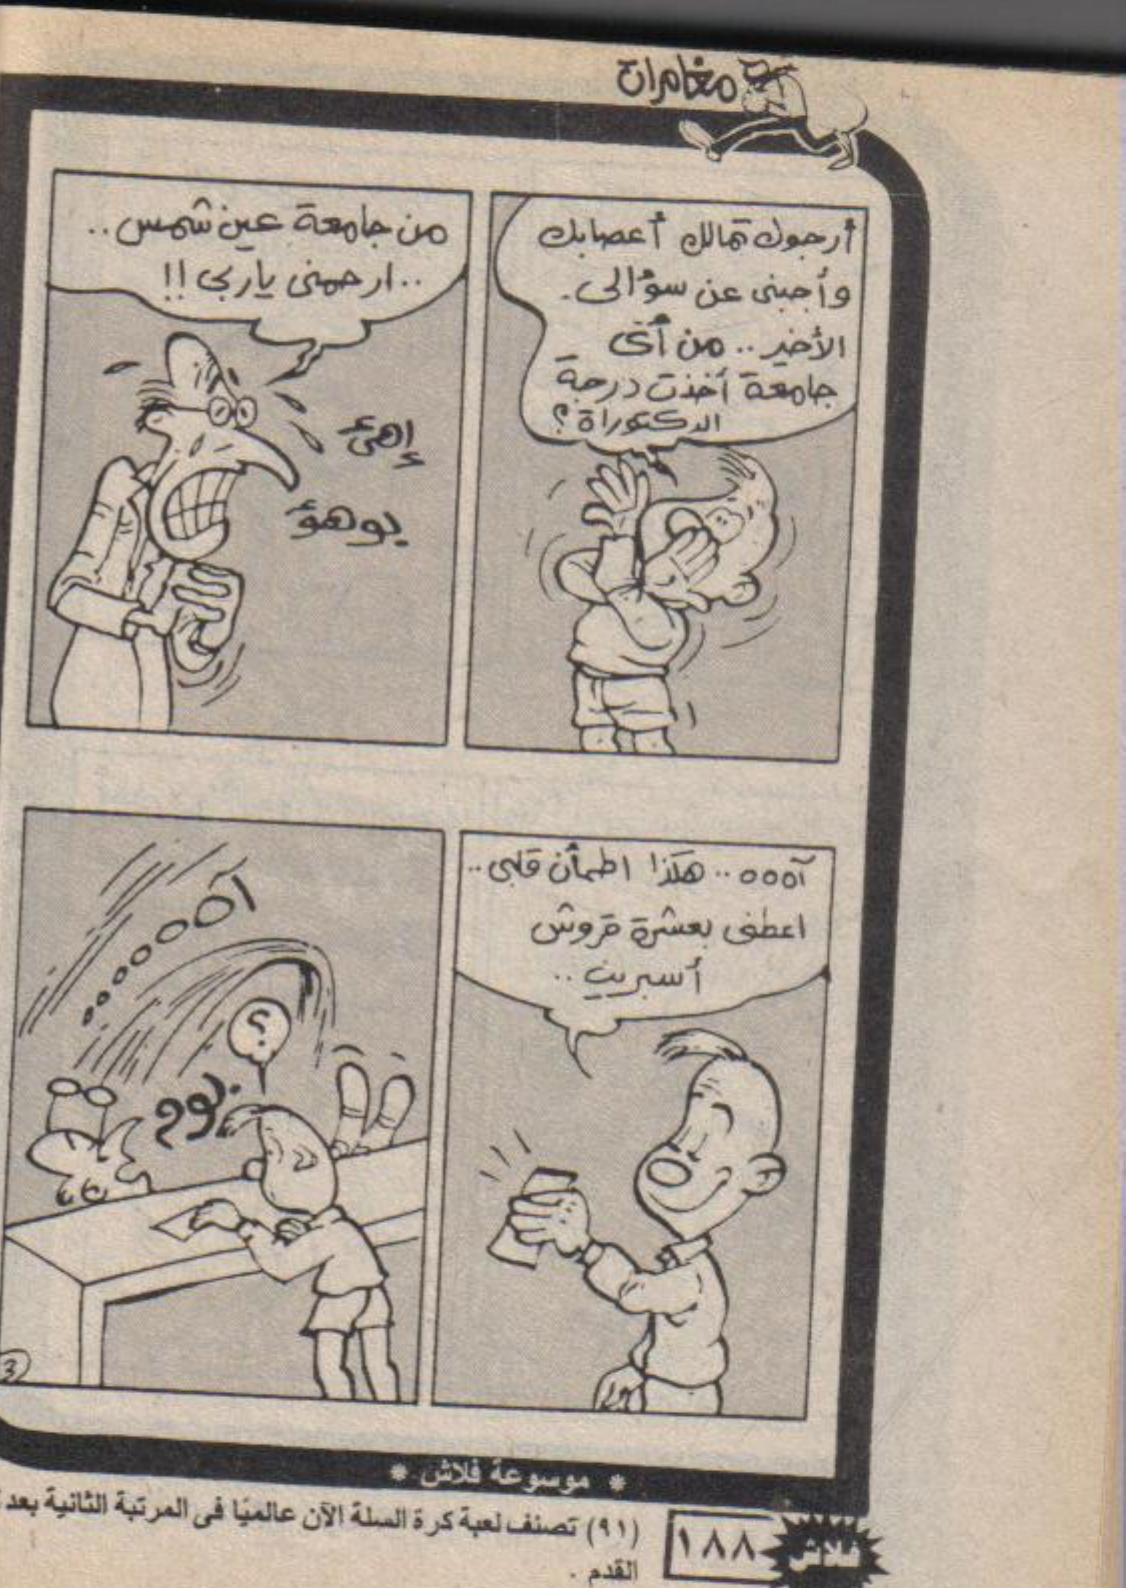 مغامرات
أرجوك تمالك أعصابك
وأجبنى عن سؤالى.
الأخير.. من أى
جامعة أخذت درجة
الدكتوراة؟
من جامعة عين شمس..
..ارحمنى ياربى!!
إهئ
بوهؤ
آه‍ه‍ه.. هكذا اطمأن قلبى..
اعطنى بعشرة قروش
أسبرين..
آه ه ه ه ه ه ه
؟
بوم
3
* موسوعة فلاش *
(٩١) تصنف لعبة كرة السلة الآن عالميًا فى المرتبة الثانية بعد
القدم .
١٨٨
فلاش